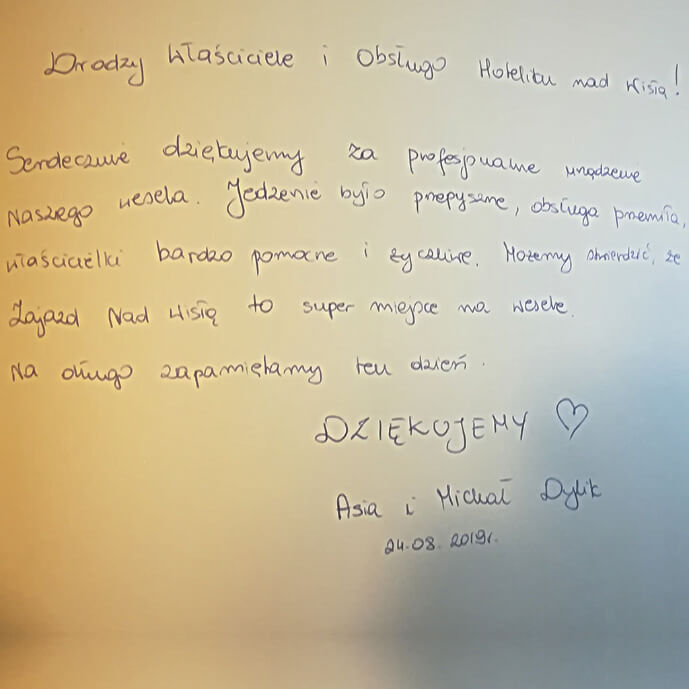 Drodzy Właściciele i Obsługo Hoteliku nad Wisłą!
Serdecznie dziękujemy za profesjonalne urządzenie
Naszego wesela. Jedzenie było przepyszne, obsługa przemiła,
właścicielki bardzo pomocne i życzliwe. Możemy stwierdzić, że
Zajazd Nad Wisłą to super miejsce na wesele.
Na długo zapamiętamy ten dzień.
DZIĘKUJEMY ♡
Asia i Michał Dylik
24.08.2019r.